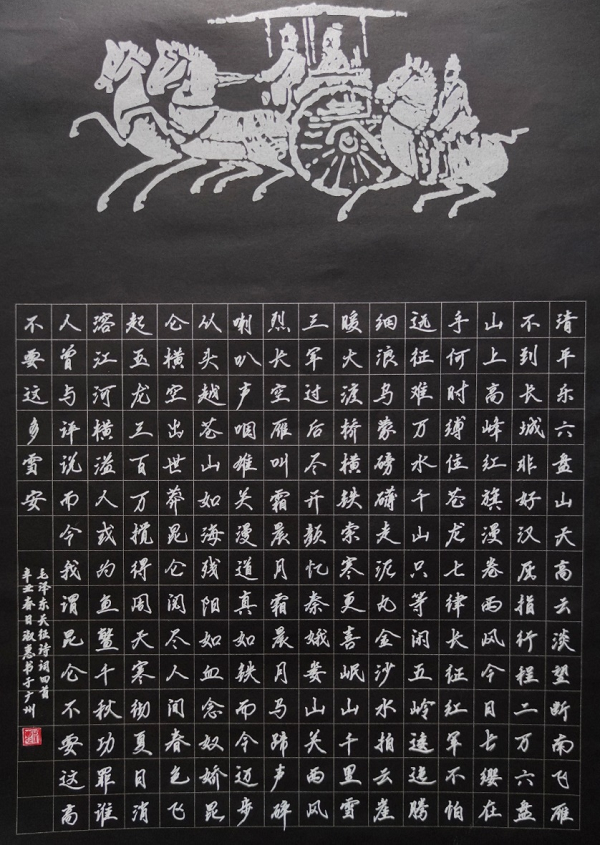 清平乐六盘山天高云淡望断南飞雁
不到长城非好汉屈指行程二万六盘
山上高峰红旗漫卷西风今日长缨在
手何时缚住苍龙七律长征红军不怕
远征难万水千山只等闲五岭逶迤腾
细浪乌蒙磅礴走泥丸金沙水拍云崖
暖大渡桥横铁索寒更喜岷山千里雪
三军过后尽开颜忆秦娥娄山关西风
烈长空雁叫霜晨月霜晨月马蹄声碎
喇叭声咽雄关漫道真如铁而今迈步
从头越苍山如海残阳如血念奴娇昆
仑横空出世莽昆仑阅尽人间春色飞
起玉龙三百万搅得周天寒彻夏日消
溶江河横溢人或为鱼鳖千秋功罪谁
人曾与评说而今我谓昆仑不要这高
不要这多雪安
毛泽东长征诗词四首
辛丑春日淑书于广州